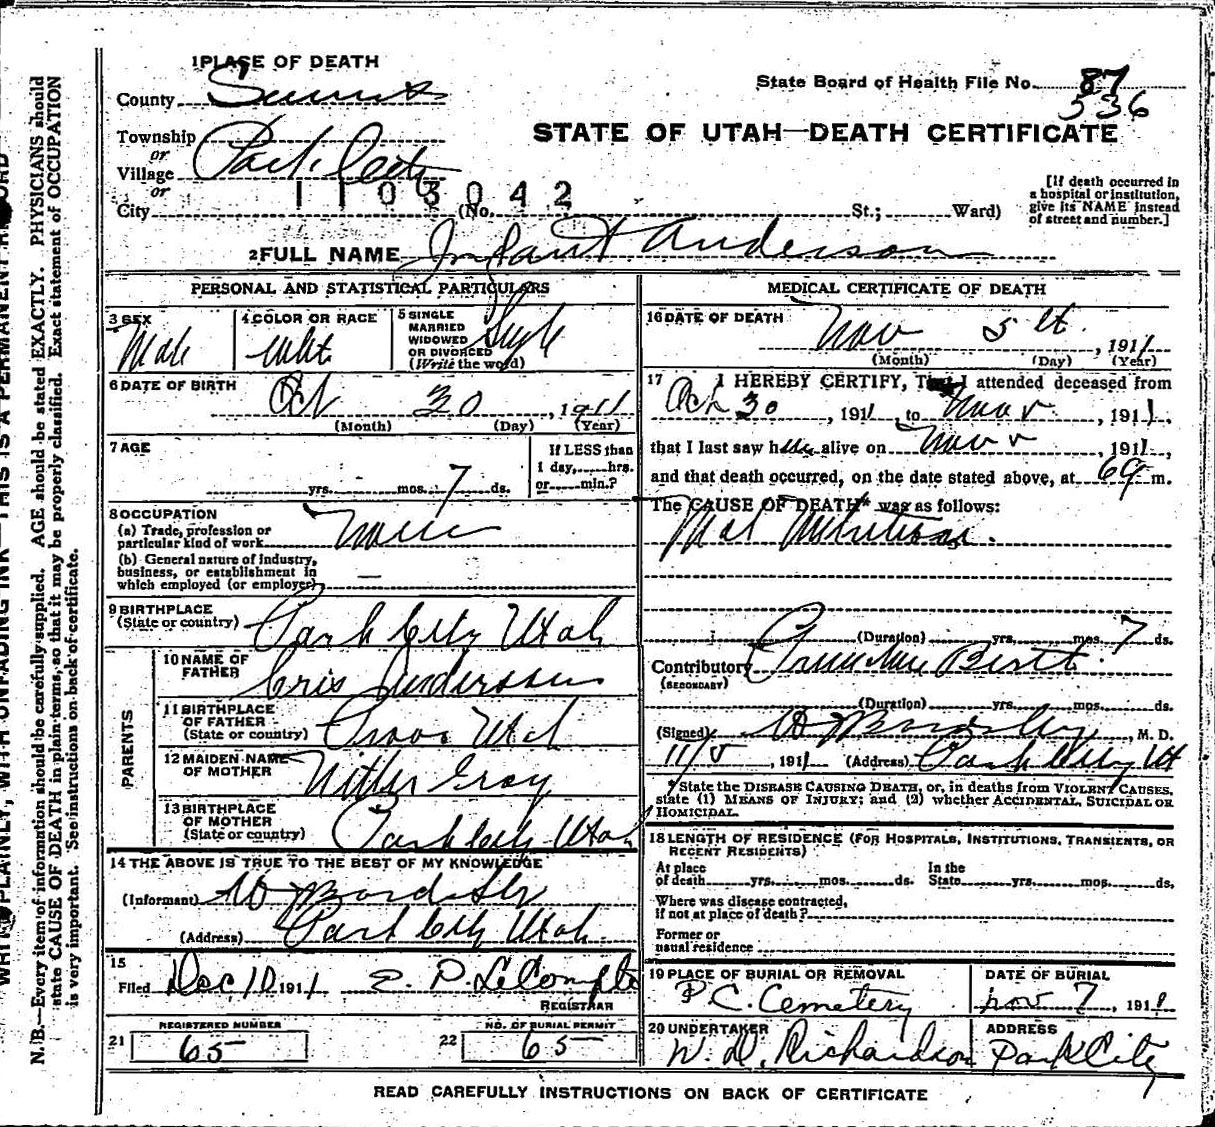 1 PLACE OF DEATH
County Summit
State Board of Health File No. 87
536
Township
or
Village Park City
or
City (No. St.; Ward)
1103042
STATE OF UTAH—DEATH CERTIFICATE
[If death occurred in
a hospital or institution,
give its NAME instead
of street and number.]
2 FULL NAME Infant Anderson
PERSONAL AND STATISTICAL PARTICULARS
3 SEX Male
4 COLOR OR RACE White
5 SINGLE
MARRIED
WIDOWED
OR DIVORCED
(Write the word) Single
6 DATE OF BIRTH
Oct 30, 1911
(Month) (Day) (Year)
7 AGE
yrs. mos. 7 ds.
If LESS than
1 day, hrs.
or min.?
8 OCCUPATION
(a) Trade, profession or
particular kind of work None
(b) General nature of industry,
business, or establishment in
which employed (or employer) —
9 BIRTHPLACE
(State or country) Park City Utah
PARENTS
10 NAME OF
FATHER Cris Anderson
11 BIRTHPLACE
OF FATHER
(State or country) Provo Utah
12 MAIDEN NAME
OF MOTHER Gray
13 BIRTHPLACE
OF MOTHER
(State or country) Park City Utah
14 THE ABOVE IS TRUE TO THE BEST OF MY KNOWLEDGE
(Informant) Bardsley
(Address) Park City Utah
15
Filed Dec 10 1911 E. P. LeCompte
REGISTRAR
REGISTERED NUMBER
21 65
NO. OF BURIAL PERMIT
22 65
MEDICAL CERTIFICATE OF DEATH
16 DATE OF DEATH
Nov 5th, 1911
(Month) (Day) (Year)
17 I HEREBY CERTIFY, That I attended deceased from
Oct 30, 1911 to Nov V, 1911,
that I last saw h alive on Nov V 1911,
and that death occurred, on the date stated above, at 6 m.
The CAUSE OF DEATH* was as follows:
Mal Nutrition.
(Duration) yrs. mos. 7 ds.
Contributory Premature Birth
(SECONDARY)
(Duration) yrs. mos. ds.
(Signed) Bardsley, M. D.
11/V, 1911 (Address) Park City Ut
*State the DISEASE CAUSING DEATH, or, in deaths from VIOLENT CAUSES,
state (1) MEANS OF INJURY; and (2) whether ACCIDENTAL, SUICIDAL OR
HOMICIDAL.
18 LENGTH OF RESIDENCE (FOR HOSPITALS, INSTITUTIONS, TRANSIENTS, OR
RECENT RESIDENTS)
At place
of death yrs. mos. ds.
In the
State yrs. mos. ds.
Where was disease contracted,
if not at place of death?
Former or
usual residence
19 PLACE OF BURIAL OR REMOVAL
P C. Cemetery
DATE OF BURIAL
Nov 7, 1911
20 UNDERTAKER
W. D. Richardson
ADDRESS
Park City
READ CAREFULLY INSTRUCTIONS ON BACK OF CERTIFICATE
PLAINLY, WITH UNFADING INK—THIS IS A PERMANENT RECORD
N. B.—Every item of information should be carefully supplied. AGE should be stated EXACTLY. PHYSICIANS should
state CAUSE OF DEATH in plain terms, so that it may be properly classified. Exact statement of OCCUPATION
is very important. See instructions on back of certificate.